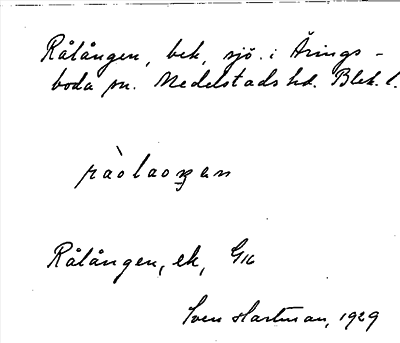 Rålången, bek, sjö. i Årings-
boda sn. Medelstads hd. Blek. l.
Rålången, ek, G16
Sven Hartman, 1929